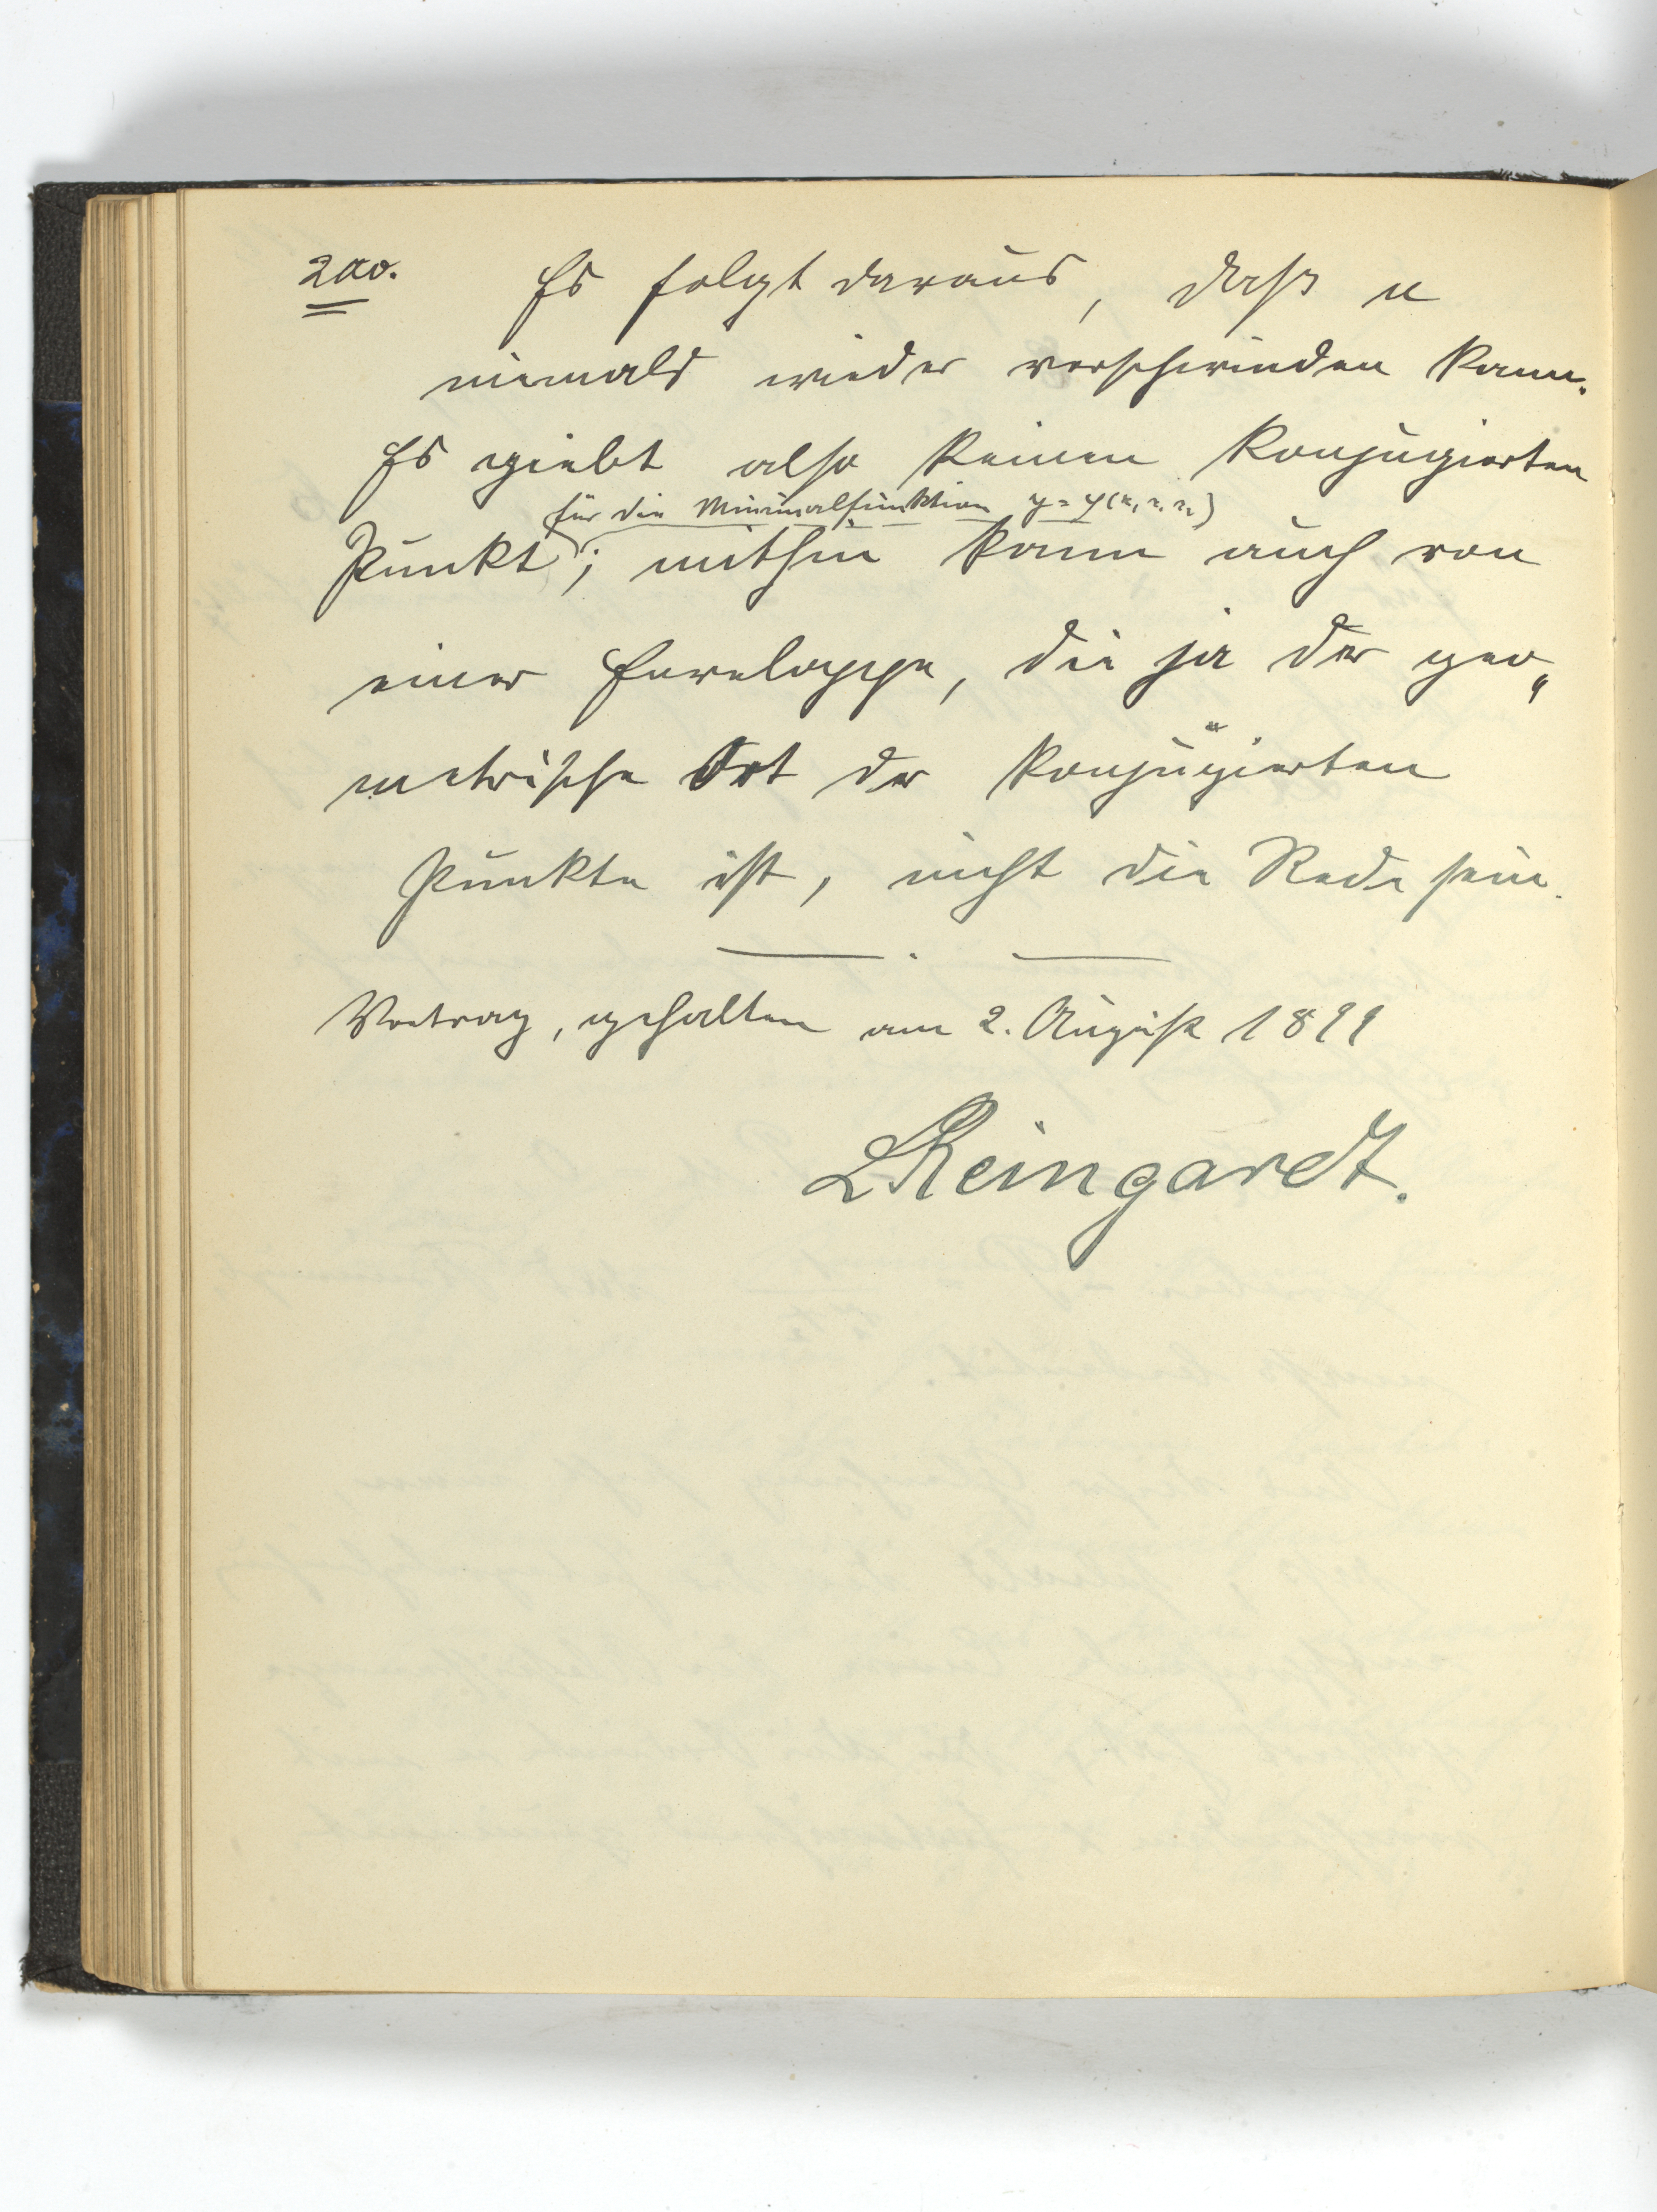 200.
Es folgt daraus, daß u
niemals wieder verschwinden kann.
Es giebt also keinen konjugierten
für die Minimalfunktion y = y(x,
Punkt; mithin kann auch von
einer Enveloppe, die ja der geo„
metrische Ort der konjugierten
Punkte ist, nicht die Rede sein.
Vortrag, gehalten am 2. August 1899
LReingardt.